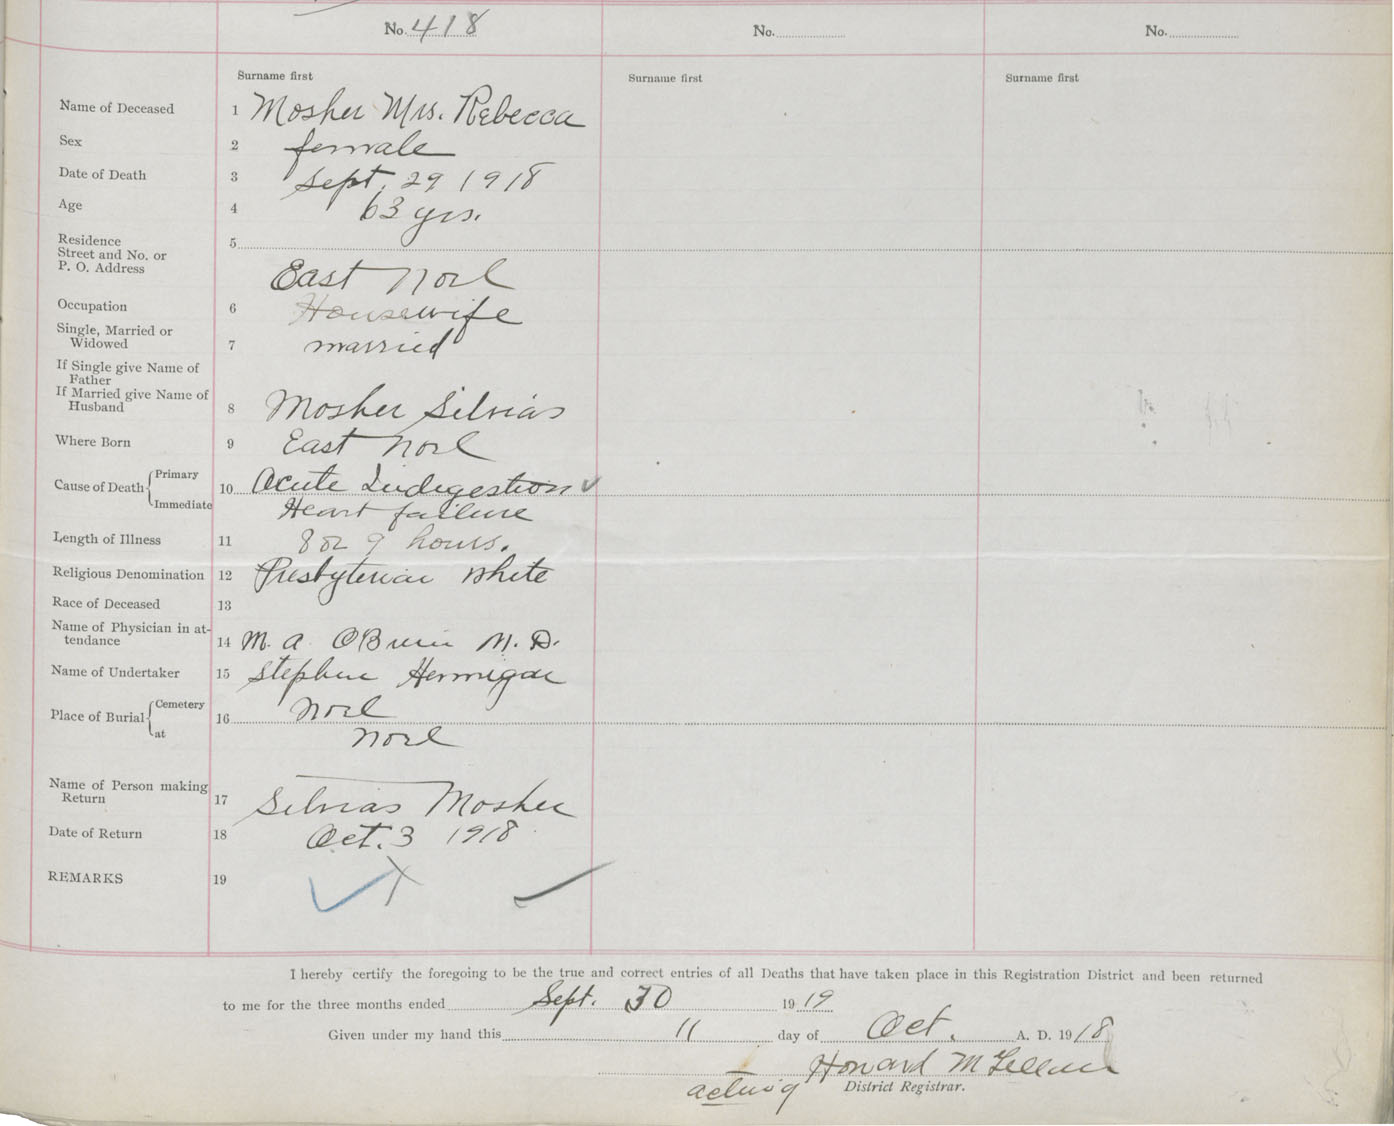 No. 418 No. No.
Surname first Surname first Surname first
Name of Deceased 1 Mosher Mrs. Rebecca
Sex 2 female
Date of Death 3 Sept. 29 1918
Age 4 63 yrs.
Residence 5
Street and No. or
P. O. Address
East Noel
Occupation 6 Housewife
Single, Married or
Widowed 7 married
If Single give Name of
Father
If Married give Name of
Husband 8 Mosher Silvias
Where Born 9 East Noel
Cause of Death Primary 10 Acute Indigestion ✓
Immediate Heart failure
Length of Illness 11 8 or 9 hours.
Religious Denomination 12 Presbyterian White
Race of Deceased 13
Name of Physician in at-
tendance 14 M. A. O'Brien M. D.
Name of Undertaker 15 Stephen Hennigar
Place of Burial Cemetery 16 Noel
at Noel
Name of Person making
Return 17 Silvias Mosher
Date of Return 18 Oct. 3 1918
REMARKS 19
I hereby certify the foregoing to be the true and correct entries of all Deaths that have taken place in this Registration District and been returned
to me for the three months ended Sept. 30 1919
Given under my hand this 11 day of Oct. A. D. 1918
Howard
acting District Registrar.